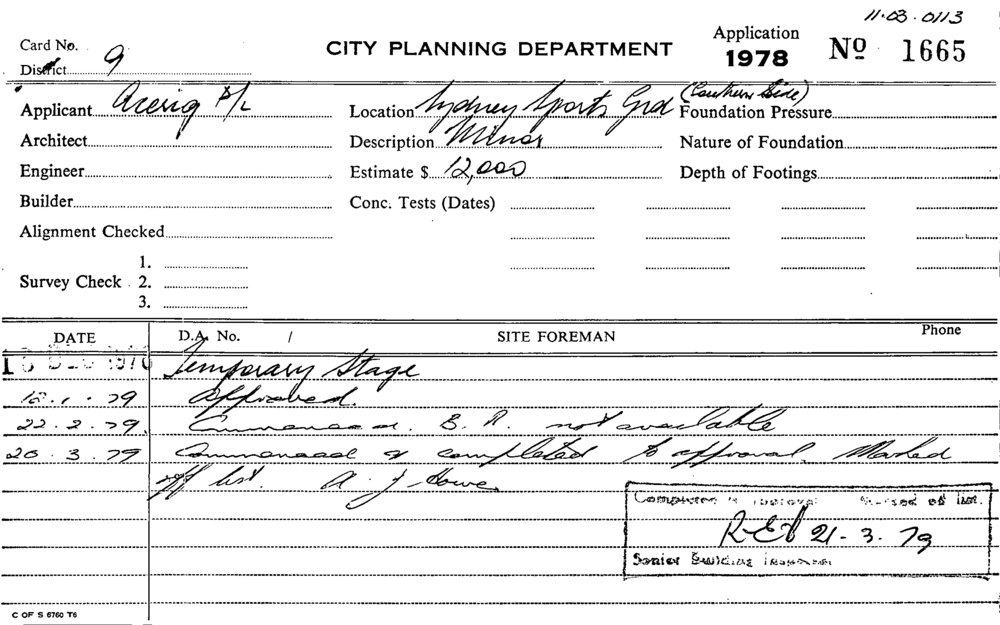 11.03.0113
Card No.
CITY PLANNING DEPARTMENT
Application
1978
No 1665
District 9
Applicant P/L
Location Sydney Sports Grd (Southern Side)
Foundation Pressure
Architect
Description Minor
Nature of Foundation
Engineer
Estimate $ 12,000
Depth of Footings
Builder
Conc. Tests (Dates)
Alignment Checked
1.
Survey Check 2.
3.
DATE
D.A. No. /
SITE FOREMAN
Phone
DEC 1978 Temporary Stage
12.1.79 Approved.
22.2.79. Commenced. B. A. not available
20.3.79 Commenced & completed to approval. Marked
off list. A. J. Howe
Completed to approval Marked off list.
21-3.79
Senior Building Inspector
C OF S 6760 T6